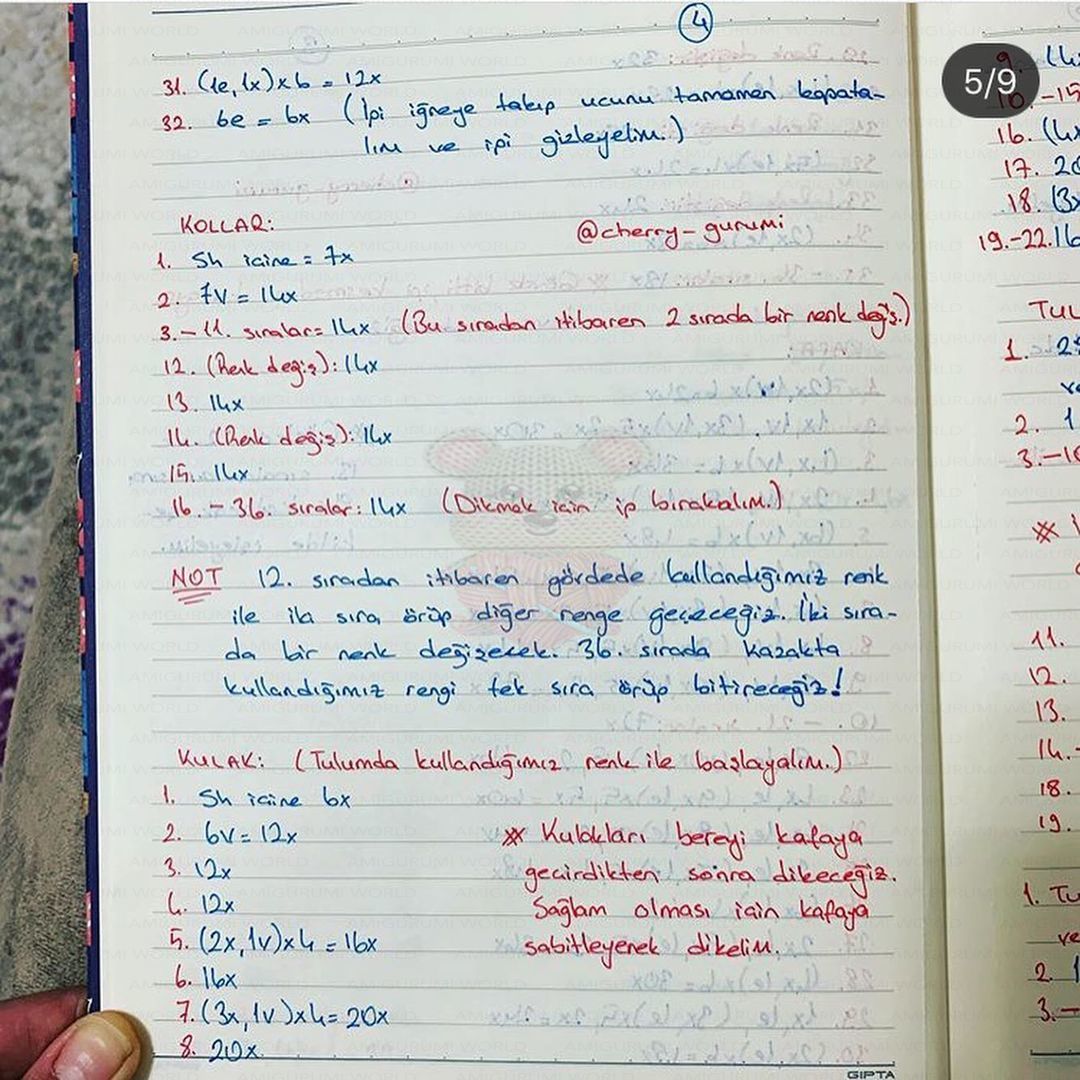 4
5/9
31. (1e, 1x)x6 = 12x
32. 6e = 6x (İpi iğneye takıp ucunu tamamen kapata-
lım ve ipi gizleyelim.)
KOLLAR:
@cherry-gurumi
1. Sh içine = 7x
2. 7V = 14x
3.-11. sıralar= 14x (Bu sıradan itibaren 2 sırada bir renk değiş.)
12. (Renk değiş): 14x
13. 14x
14. (Renk değiş): 14x
15. 14x
16. - 36. sıralar: 14x (Dikmek için ip bırakalım.)
NOT 12. sıradan itibaren gördede kullandığımız renk
ile iki sıra örüp diğer renge geçeceğiz. İki sıra-
da bir renk değişecek. 36. sırada kazakta
kullandığımız rengi tek sıra örüp bitireceğiz!
KULAK: (Tulumda kullandığımız renk ile başlayalım.)
1. Sh içine 6x
2. 6V = 12x
3. 12x
4. 12x
5. (2x, 1v)x4 = 16x
6. 16x
7. (3x, 1v)x4 = 20x
8. 20x
* Kulakları bereyi kafaya
geçirdikten sonra dikeceğiz.
Sağlam olması için kafaya
sabitleyerek dikelim.
GIPTA
9. (4x
10.-15
16. (4x
17. 20
18. (3x
19.-22. 16
TUL
1. 25
ve
2. 1
3.-10
11.
12.
13.
14.-
18.
19.
1. Tu
ve
2. 1
3.-
AMIGURUMI WORLD